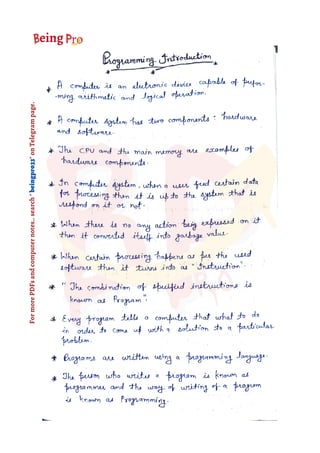 Being Pro
1
Programming Introduction
* A computer is an electronic device capable of perfor-
-ming arithmetic and logical operation.
* A computer system has two components - hardware
and software.
* The CPU and the main memory are examples of
hardware components.
* In computer system, when a user feed certain data
for processing then it is upto the system that is
respond on it or not.
* When there is no any action being expressed on it
then it converted itself into garbage value.
* When certain processing happens as per the used
software then it turns into as "Instruction".
* "The combination of specified instructions is
known as Program".
* Every program tells a computer that what to do
in order to come up with a solution to a particular
problem.
* Programs are written using a programming language.
* The person who writes a program is known as
programmer and the way of writing of a program
is known as Programming.
For more PDFs and computer notes.. search "beingpro33" on Telegram page.